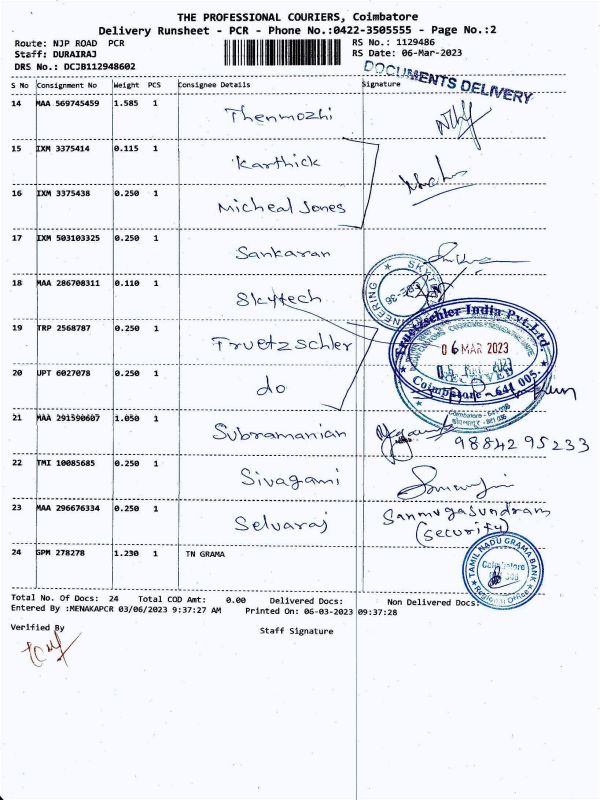 THE PROFESSIONAL COURIERS, Coimbatore
Delivery Runsheet - PCR - Phone No.:0422-3505555 - Page No.:2
Route: NJP ROAD PCR
RS No.: 1129486
Staff: DURAIRAJ
RS Date: 06-Mar-2023
DRS No.: DCJB112948602
DOCUMENTS DELIVERY
S No Consignment No Weight PCS Consignee Details Signature
14 MAA 569745459 1.585 1 Thenmozhi
15 IXM 3375414 0.115 1 Karthick
16 IXM 3375438 0.250 1 Micheal Jones
17 IXM 503103325 0.250 1 Sankaran
18 MAA 286708311 0.110 1 Skytech
19 TRP 2568787 0.250 1 Fruetzschler
Truetzschler India Pvt.Ltd.
06 MAR 2023
RECEIVED
Coimbatore - 641 005.
20 UPT 6027078 0.250 1 do
21 MAA 291590607 1.050 1 Subramanian
9884295233
22 TMI 10085685 0.250 1 Sivagami
23 MAA 296676334 0.250 1 Selvaraj
Sanmugasundram
(security)
24 GPM 278278 1.230 1 TN GRAMA
TAMIL NADU GRAMA BANK
Coimbatore
Regional Office
Total No. Of Docs: 24 Total COD Amt: 0.00 Delivered Docs: Non Delivered Docs:
Entered By :MENAKAPCR 03/06/2023 9:37:27 AM Printed On: 06-03-2023 09:37:28
Verified By
Staff Signature